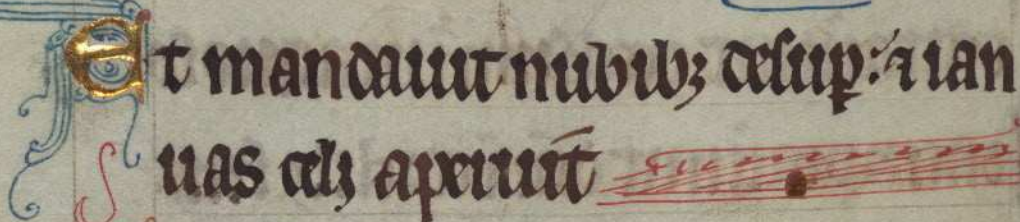 Et mandauit nubibꝫ desuꝑ: ⁊ ian
uas celi aperuit